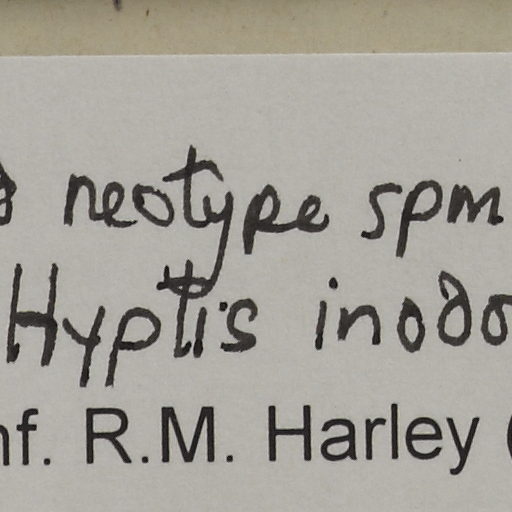 neotype spm
Hyptis inodo
nf. R.M. Harley (